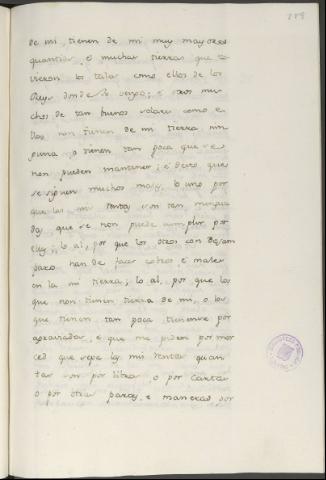 de mi, tienen de mi muy mayores
quantias, e muchas tierras que to
vieron los tales como ellos de los
Reys donde Yo vengo; e otros mu
chos de tan buenos solares como e
llos non tienen de mi tierra nin
guna o tienen tan poca que se
non pueden mantener; e desto que
se siguen muchos males, lo uno por
que las mis rentas son tan mengua
das, que se non puede complir por
ellas; lo al, por que los otros con desam
paro han de facer robos e males
en la mi tierra; lo al, por que los
que non tienen tierra de mi, o los
que tienen tan poca tienense por
agraviados, e que me piden por mer
ced que sepa las mis rentas quan
tas son por libra, o por cartas
o por otras partes, e maneras por